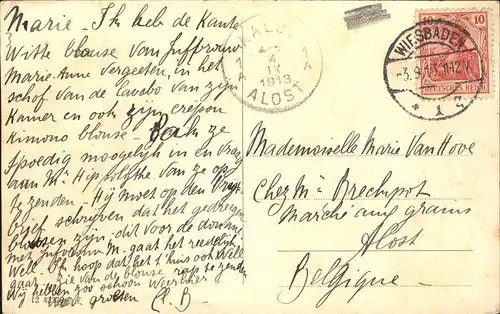 Marie - Ik heb de Kante
Witte blouse van Juffrouw
Marie-Anne vergeten, in het
schof van de lavabo van zijn
Kamer en ook zijn crepon
Kimono blouse - Pak ze
spoedig mogelijk in en vraag
aan Mr Hippolythe van ze op
te zenden. Hij moet op den
brief schrijven dat het gedregen
blousen zijn, dit voor de douane
met Juffrouw M. gaat het redelijk
Well. Ik hoop dat het t'huis ook Well
gaat. zie van de blouse rap te zenden
Wij hebben zoo schoon Weer hier
groeten C. B.
AALST
1 A
4
IX
1913
1 A
ALOST
10
DEUTSCHES REICH
WIESBADEN
-3.9.13. 11-12 V.
* 1
Mademoiselle Marie Van Hove
Chez Mr Brechpot
Marché aux grains
Alost
Belgique -